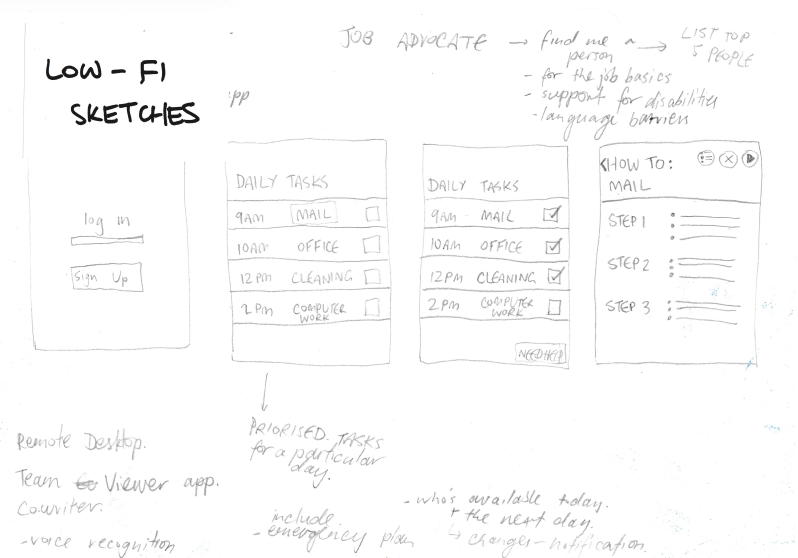 LOW-FI
SKETCHES
JOB ADVOCATE → find me a person → LIST TOP 5 PEOPLE
- for the job basics
- support for disabilities
- language barriers
app
log in
Sign Up
DAILY TASKS
9AM MAIL
10AM OFFICE
12PM CLEANING
2PM COMPUTER WORK
DAILY TASKS
9AM MAIL
10AM OFFICE
12PM CLEANING
2PM COMPUTER WORK
NEED HELP
<HOW TO:
MAIL
STEP 1
STEP 2
STEP 3
PRIORISED TASKS
for a particular
day.
Remote Desktop.
Team Viewer app.
Cowriter.
- voice recognition
include
- emergency plan
- who's available today.
+ the next day.
↳ changes - notification.